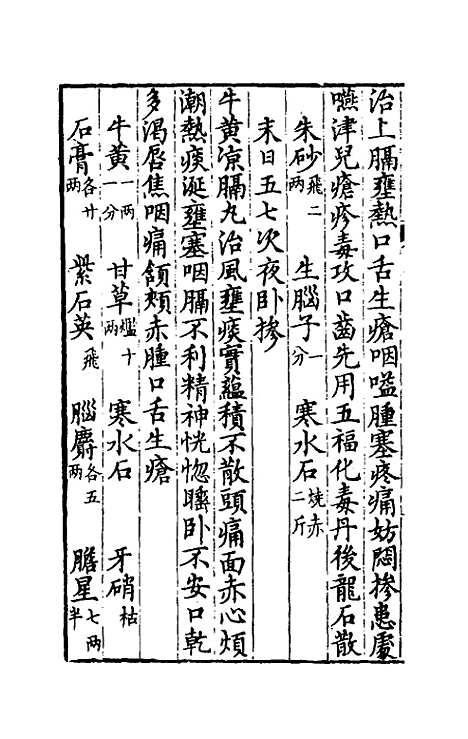 治上膈壅熱口舌生瘡咽嗌腫塞疼痛妨悶摻患處
嚥津兒瘡疹毒攻口齒先用五福化毒丹後龍石散
朱砂飛二兩 生腦子一分 寒水石燒赤二斤
末日五七次夜卧摻
牛黄凉膈丸治風壅痰實蘊積不散頭痛面赤心煩
潮熱痰涎壅塞咽膈不利精神恍惚𥇦卧不安口乾
多渴唇焦咽痛頷頰赤腫口舌生瘡
牛黄一兩一分 甘草爁十兩 寒水石 牙硝枯
石膏各廿兩 紫石英飛 腦麝各五兩 膽星七兩半